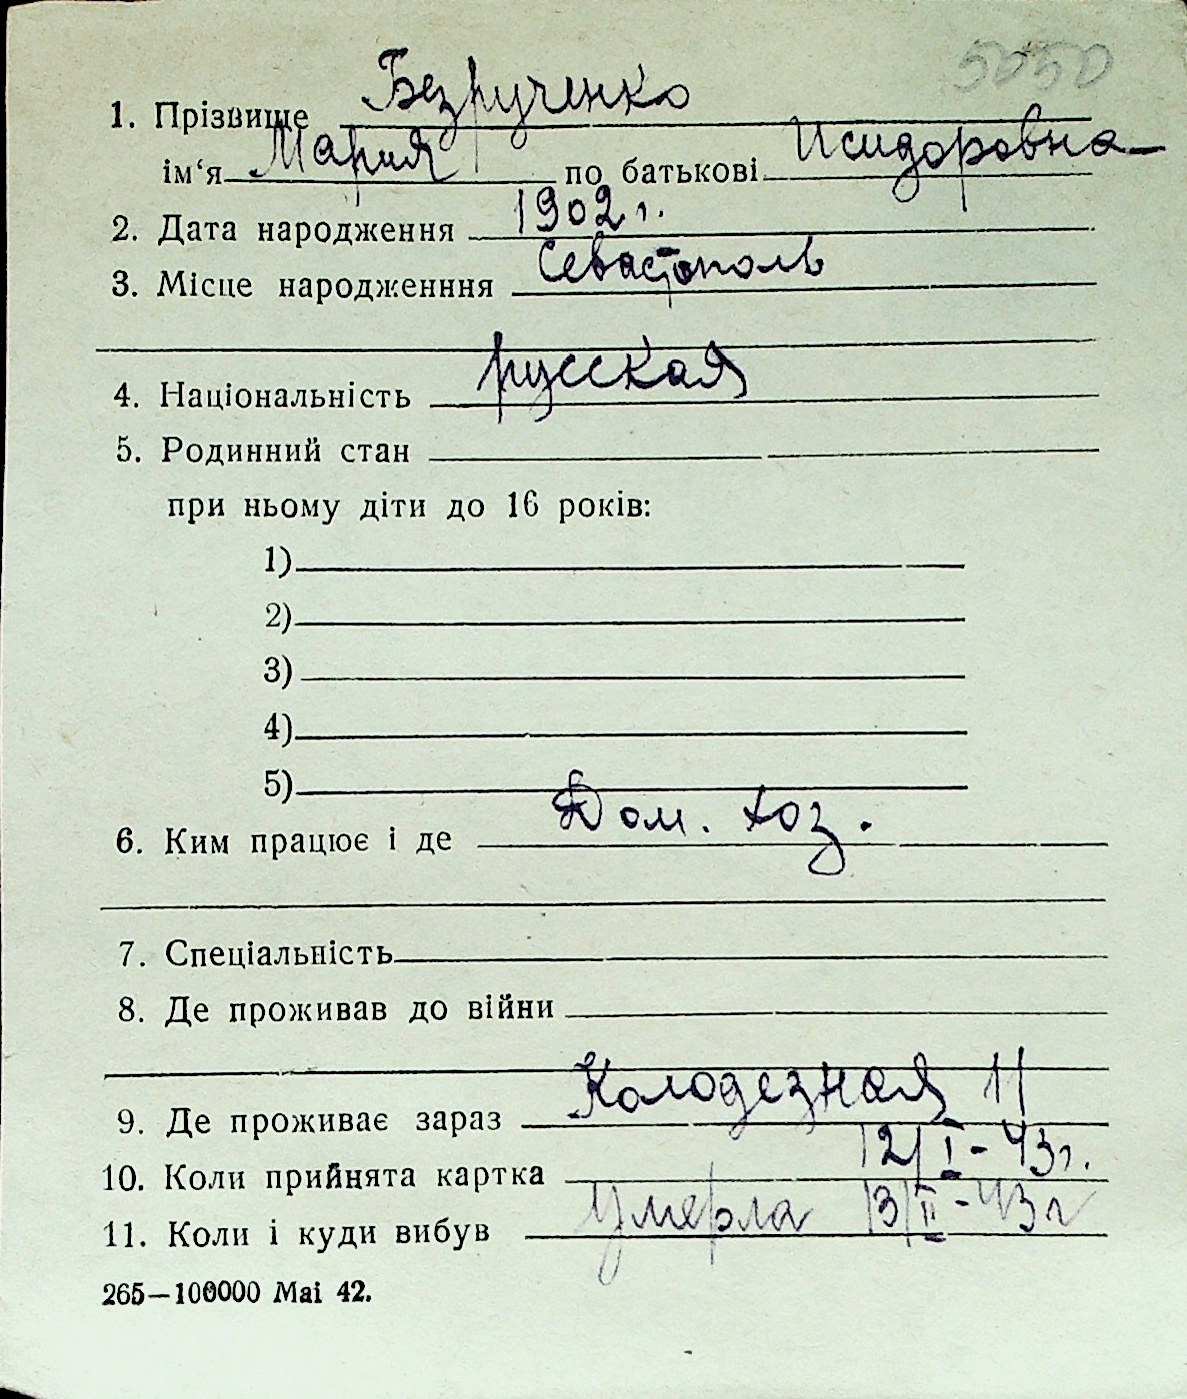 5050
1. Прізвище Безрученко
ім‘я Мария по батькові Исидоровна
2. Дата народження 1902 г.
3. Місце народженння Севастополь
4. Національність русская
5. Родинний стан
при ньому діти до 16 років:
1)
2)
3)
4)
5)
6. Ким працює і де Дом. хоз.
7. Спеціальність
8. Де проживав до війни
9. Де проживає зараз Колодезная 11
10. Коли прийнята картка 12/I-43г.
11. Коли і куди вибув Умерла 13/II-43г
265—100000 Mai 42.